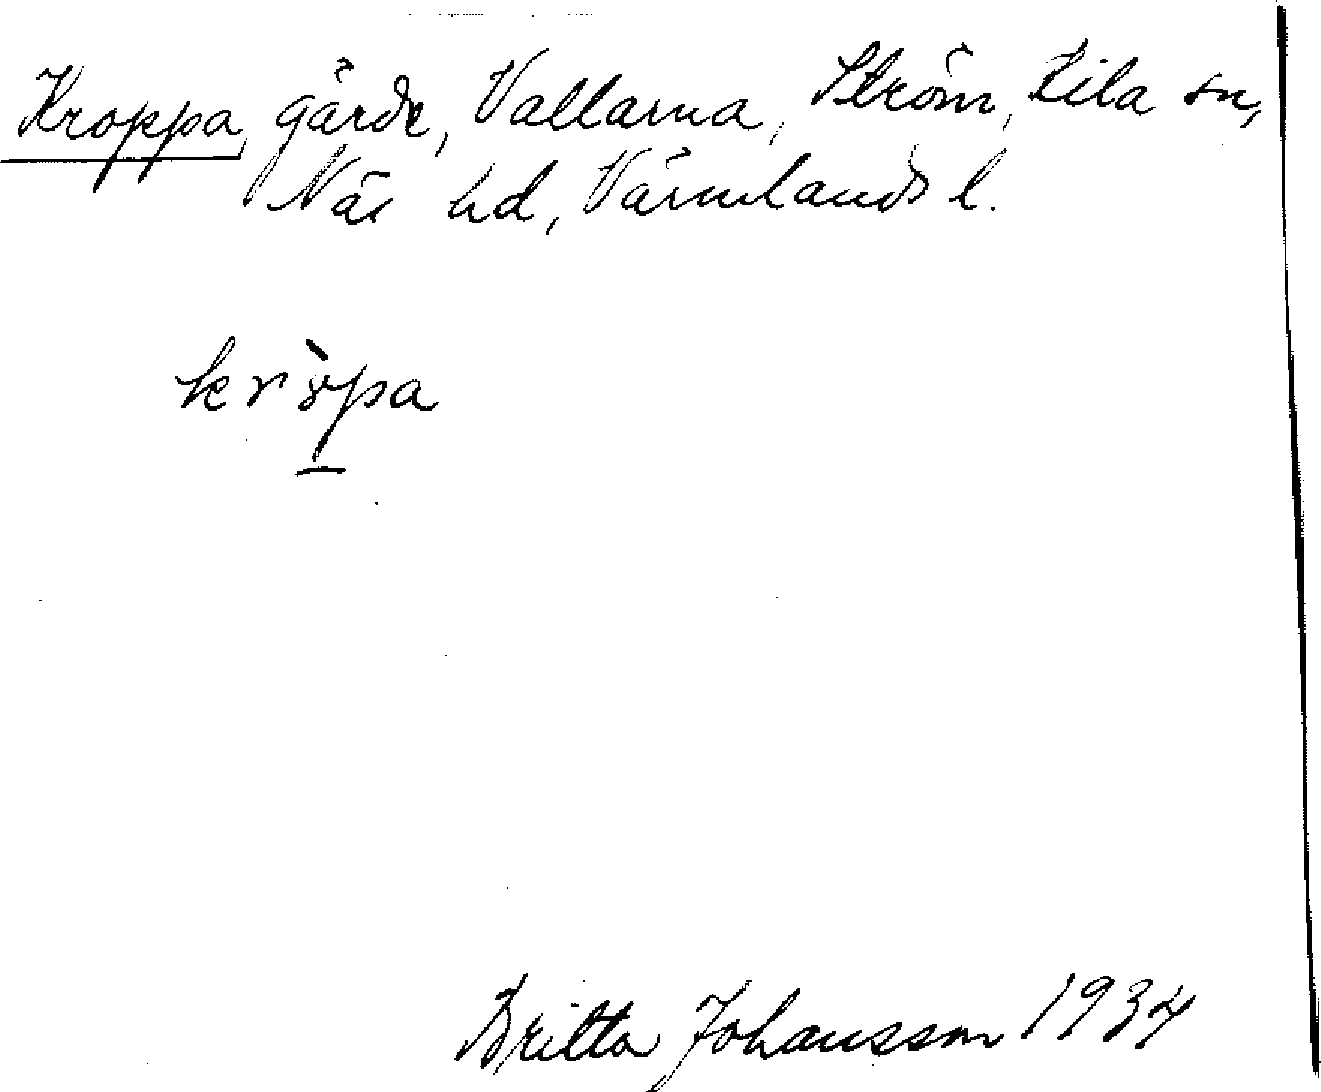 Kroppa, gärde, Vallarna, Ström, Kila sn,
Näs hd, Värmlands l.
Britta Johansson 1934